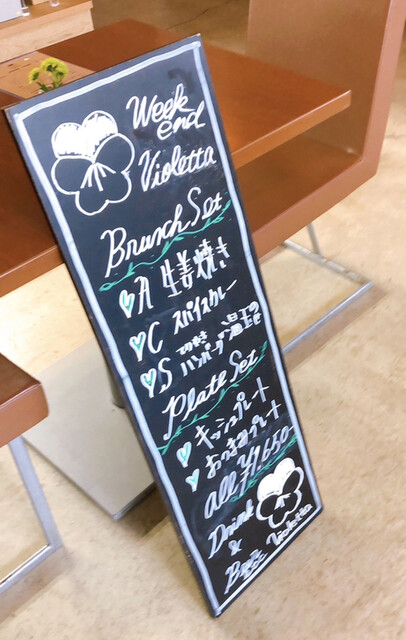 Week
end
Violetta
Brunch Set
A 生姜焼き
C スパイスカレー
S ハンバーグ温玉のせ
Plate Set
キッシュプレート
おつまみプレート
all ¥1,650-
Drink
&
Violetta